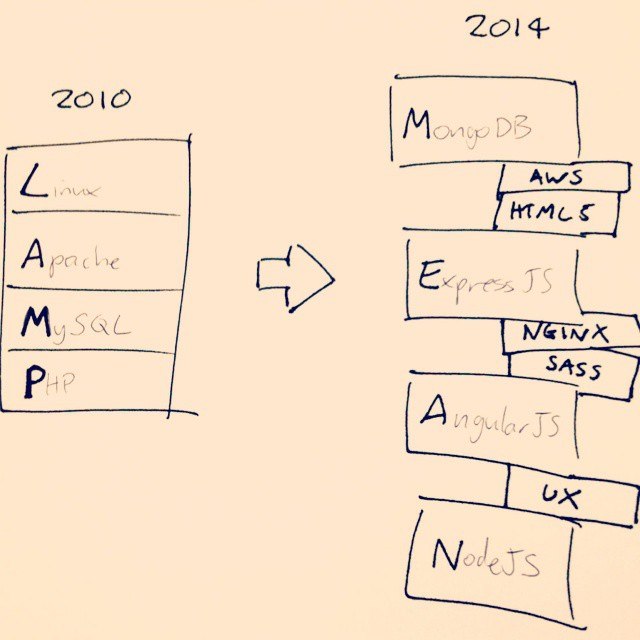 2010
Linux
Apache
MySQL
PHP
2014
MongoDB
AWS
HTML5
ExpressJS
NGINX
SASS
AngularJS
UX
NodeJS